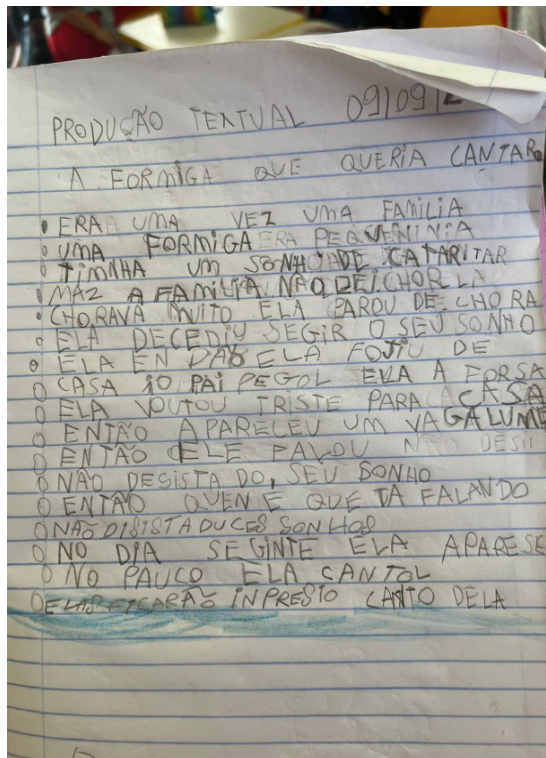 PRODUÇÃO TEXTUAL 09/09/2
A FORMIGA QUE QUERIA CANTAR
ERA UMA VEZ UMA FAMILIA
UMA FORMIGA ERA PEQUENINIA
TIMNHA UM SONHO DE CATARITAR
MAZ A FAMILIA NÃO DEI CHOR LA
CHORAVA MUITO ELA PAROU DE CHORA
ELA DECEDIU SEGIR O SEU SONHO
ELA EN DÃO ELA FOJIU DE
CASA IO PAI PEGOL ELA A FORSA
ELA VOUTOU TRISTE PARA CASA
ENTÃO APARECEU UM VAGALUME
ENTÃO ELE FALOU NÃO DESIS
NÃO DESISTA DO, SEU SONHO
ENTÃO QUEN E QUE TA FALANDO
NAÕ DISISTA DUCES SONHOS
NO DIA SEGINTE ELA APARESE
NO PAUCO ELA CANTOL
ELAS FICARAÕ INPRESIO CANTO DELA